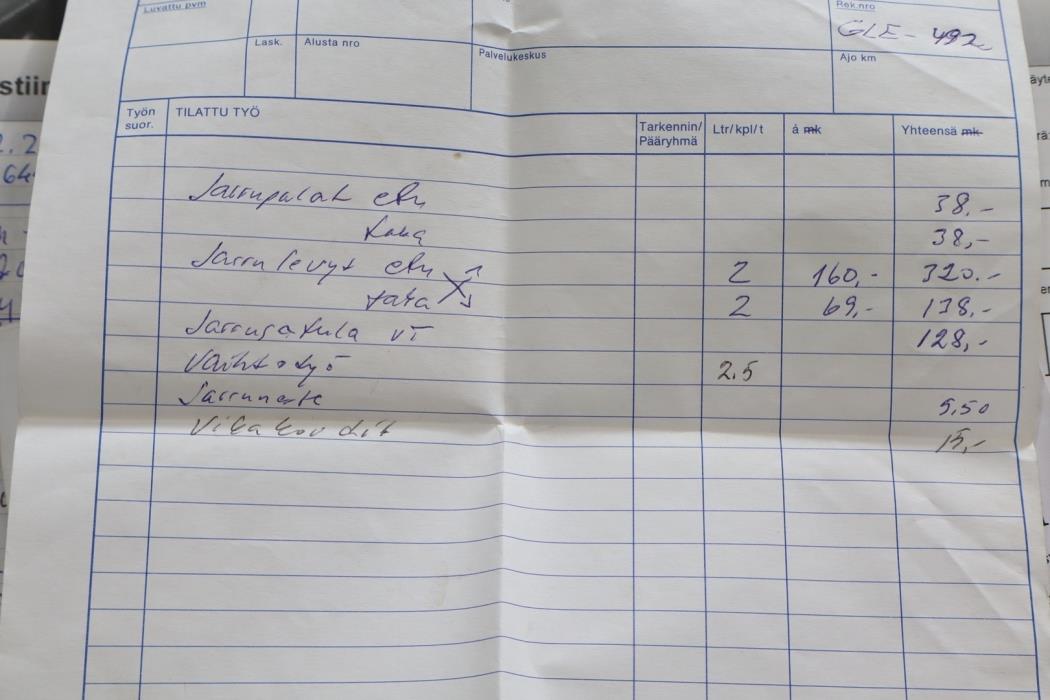 Luvattu pvm
Rek.nro
GLE-492
Lask.
Alusta nro
Palvelukeskus
Ajo km
Työn suor.
TILATTU TYÖ
Tarkennin/ Pääryhmä
Ltr/kpl/t
à mk
Yhteensä mk
Jarrupalat etu 38.-
taka 38,-
Jarrulevyt etu 2 160,- 320.-
taka 2 69,- 138,-
Jarrusatula vt 128,-
Vaihtotyö 2.5
Jarruneste 5,50
Vikakoodit 15,-
stiin
64